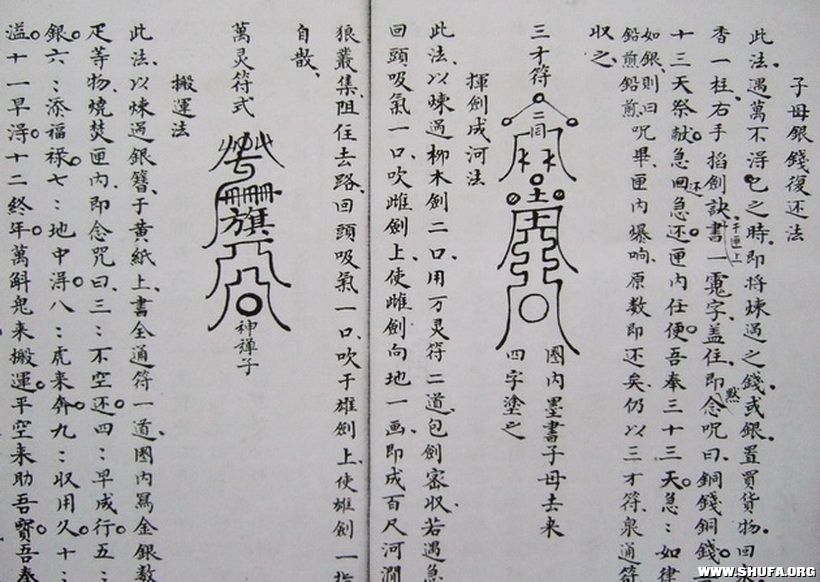 子母銀錢復还法
此法遇萬不得已之時。即將煉過之錢。或銀。置買貨物。回
香一柱。右手掐劍訣書一寃字。盖住。即默念咒曰。銅錢銅錢。
于匣上
十三天祭献。急回急还。还匣内任便。吾奉三十三天。急:如律
如銀。則曰
鉛煎鉛煎。咒畢。匣内爆响。原数即还矣。仍以三才符。泉通符
収之。
三才符
二同
土
圏内墨書子母去来
四字塗之
揮劍成河法
此法。以煉過栁木劍二口。用万灵符二道。包劍密収。若遇急
回頭吸氣一口。吹雌劍上。使雌劍向地一画。即成百尺河澗
狼叢集。阻住去路。回頭吸氣一口。吹于雄劍上。使雄劍一指
自散。
萬灵符式
旗
神譚子
搬運法
此法。以煉過銀簪。于黄紙上。書全通符一道。圏内寫金銀数
疋等物。燒焚匣内。即念咒曰。三:不空还。四:早成行。五:
銀。六:添福禄。七:地中得。八:虎来奔。九:収用久。十:
溢。十一早得。十二終年。萬斛鬼来搬運。平空来助吾寳。吾奉
WWW.SHUFA.ORG